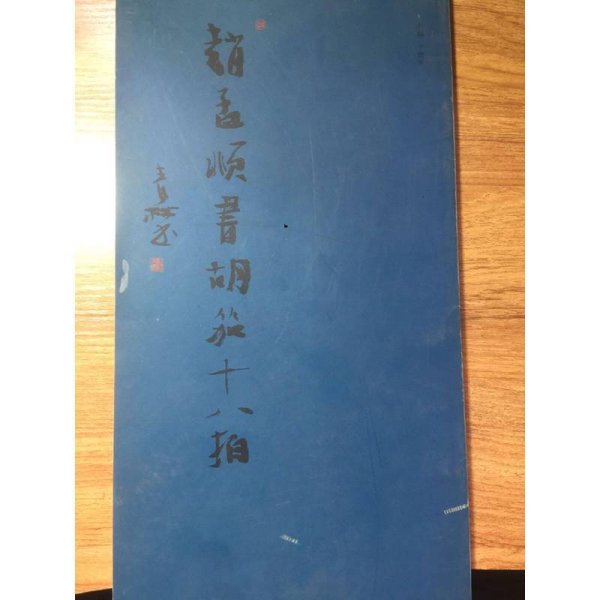 趙孟頫書胡笳十八拍